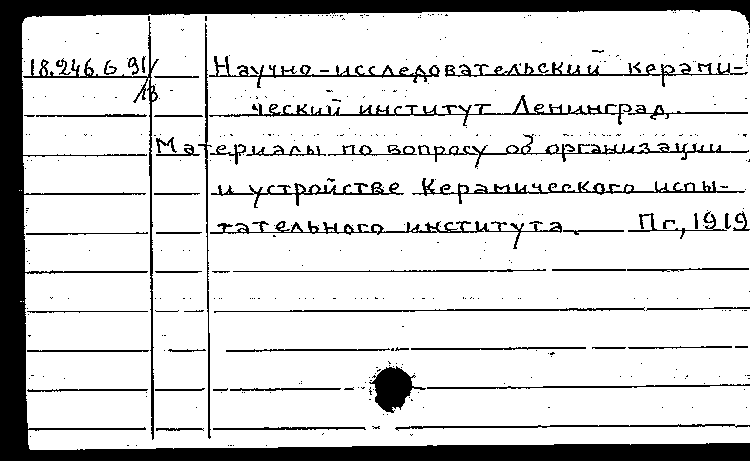 18.246.6.91/13
Научно-исследовательский керами-
ческий институт Ленинград.
Материалы по вопросу об организации
и устройстве Керамического испы-
тательного института. Пг., 1919